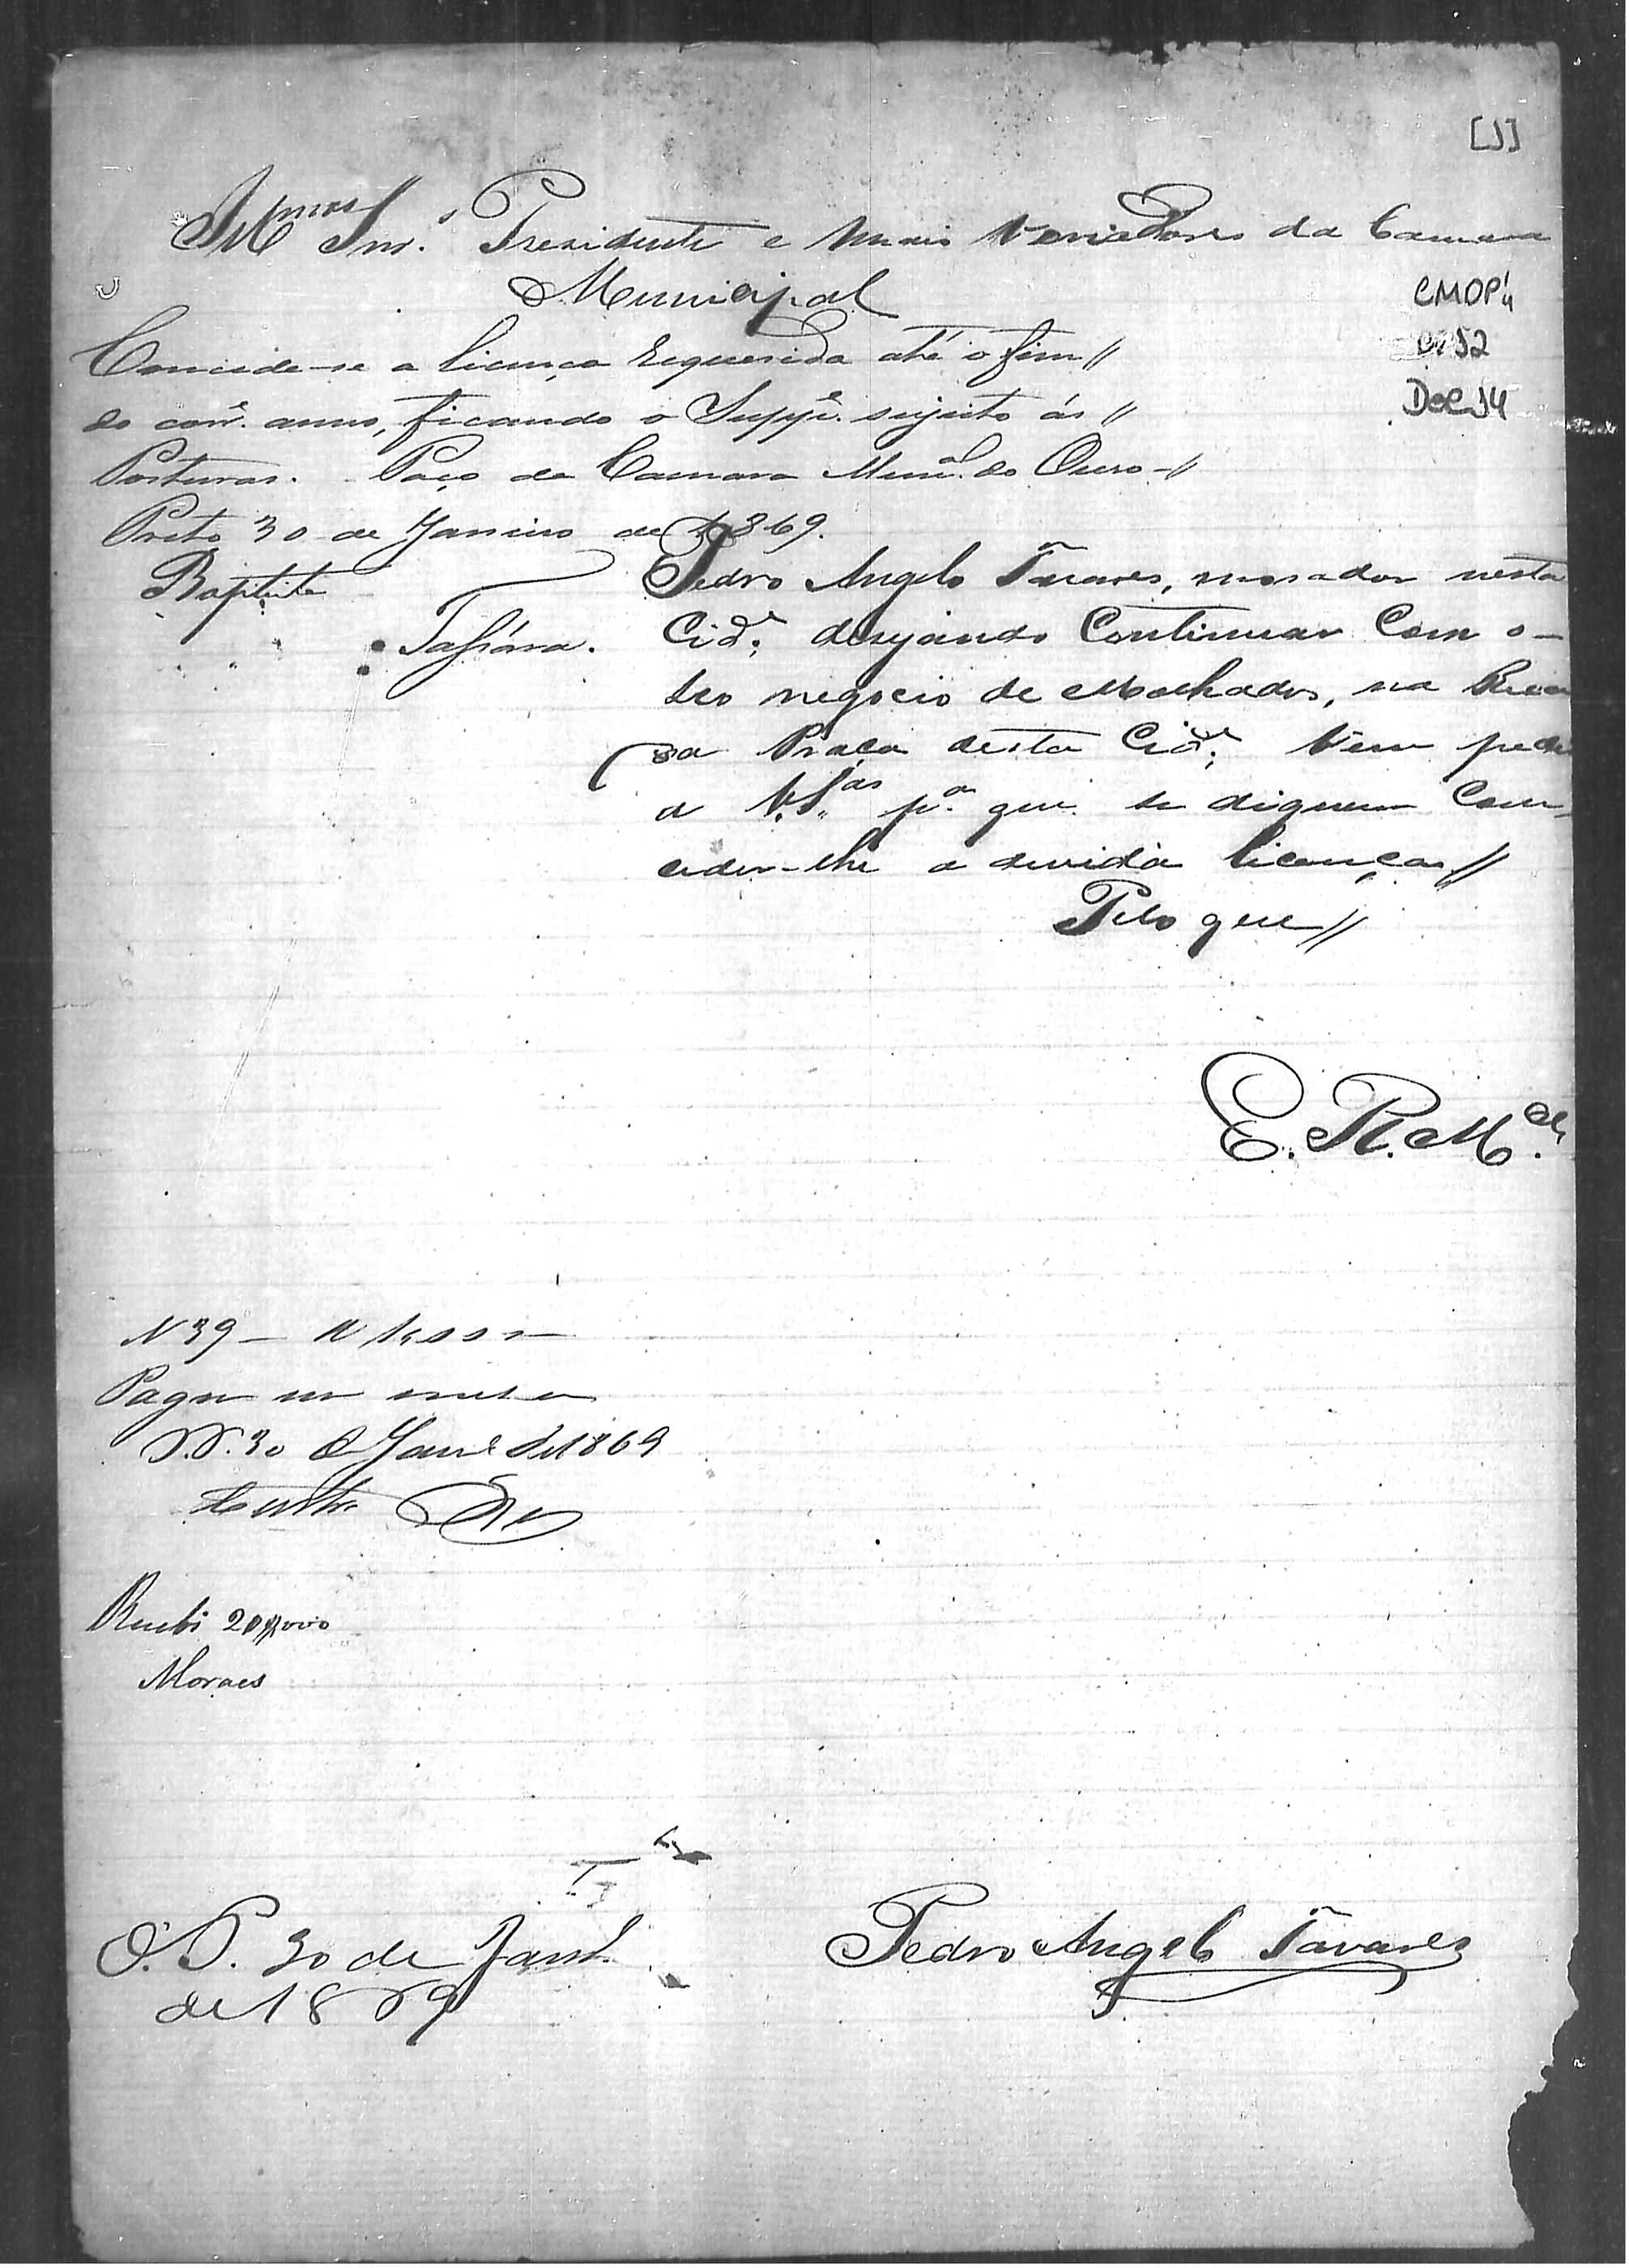 [1]
Illmos Snrs. Presidente e mais Veriadores da Camara
Municipal
CMOP
Cx 52
Doc 14
Concede-se a licença requerida até o fim //
do corre. anno, ficando o Suppe. sujeito ás //
Posturas. Paço da Camara Munal. do Ouro-//
Preto 30 de Janeiro de 1869.
Baptista
Pedro Angelo Tavares, morador nesta
Cide. desejando Continuar Com o-
seo negocio de Molhados, na
da Praça desta Cide. Vem pedir
a V.Sas. pa. que se dignem Con-
ceder-lhe a devida licença //
Pelo que //
E. R. Mce.
N 39 -
Pagou
30 de Janro de 1869
Recebi 20$000
Moraes
O. P. 30 de Janro.
de 1869
Pedro Angelo Tavares